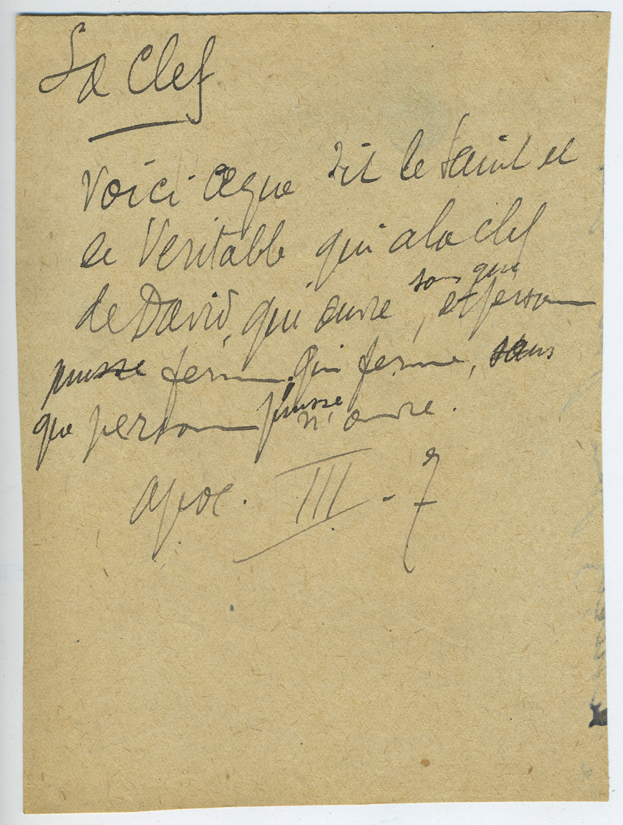 La Clef
Voici ce que dit le Saint et
le Veritable qui a la clef
de David, qui ouvre, sans que et person
puisse ferm qui ferme, sans
que person puisse n'ouvre.
apoc. III - 7